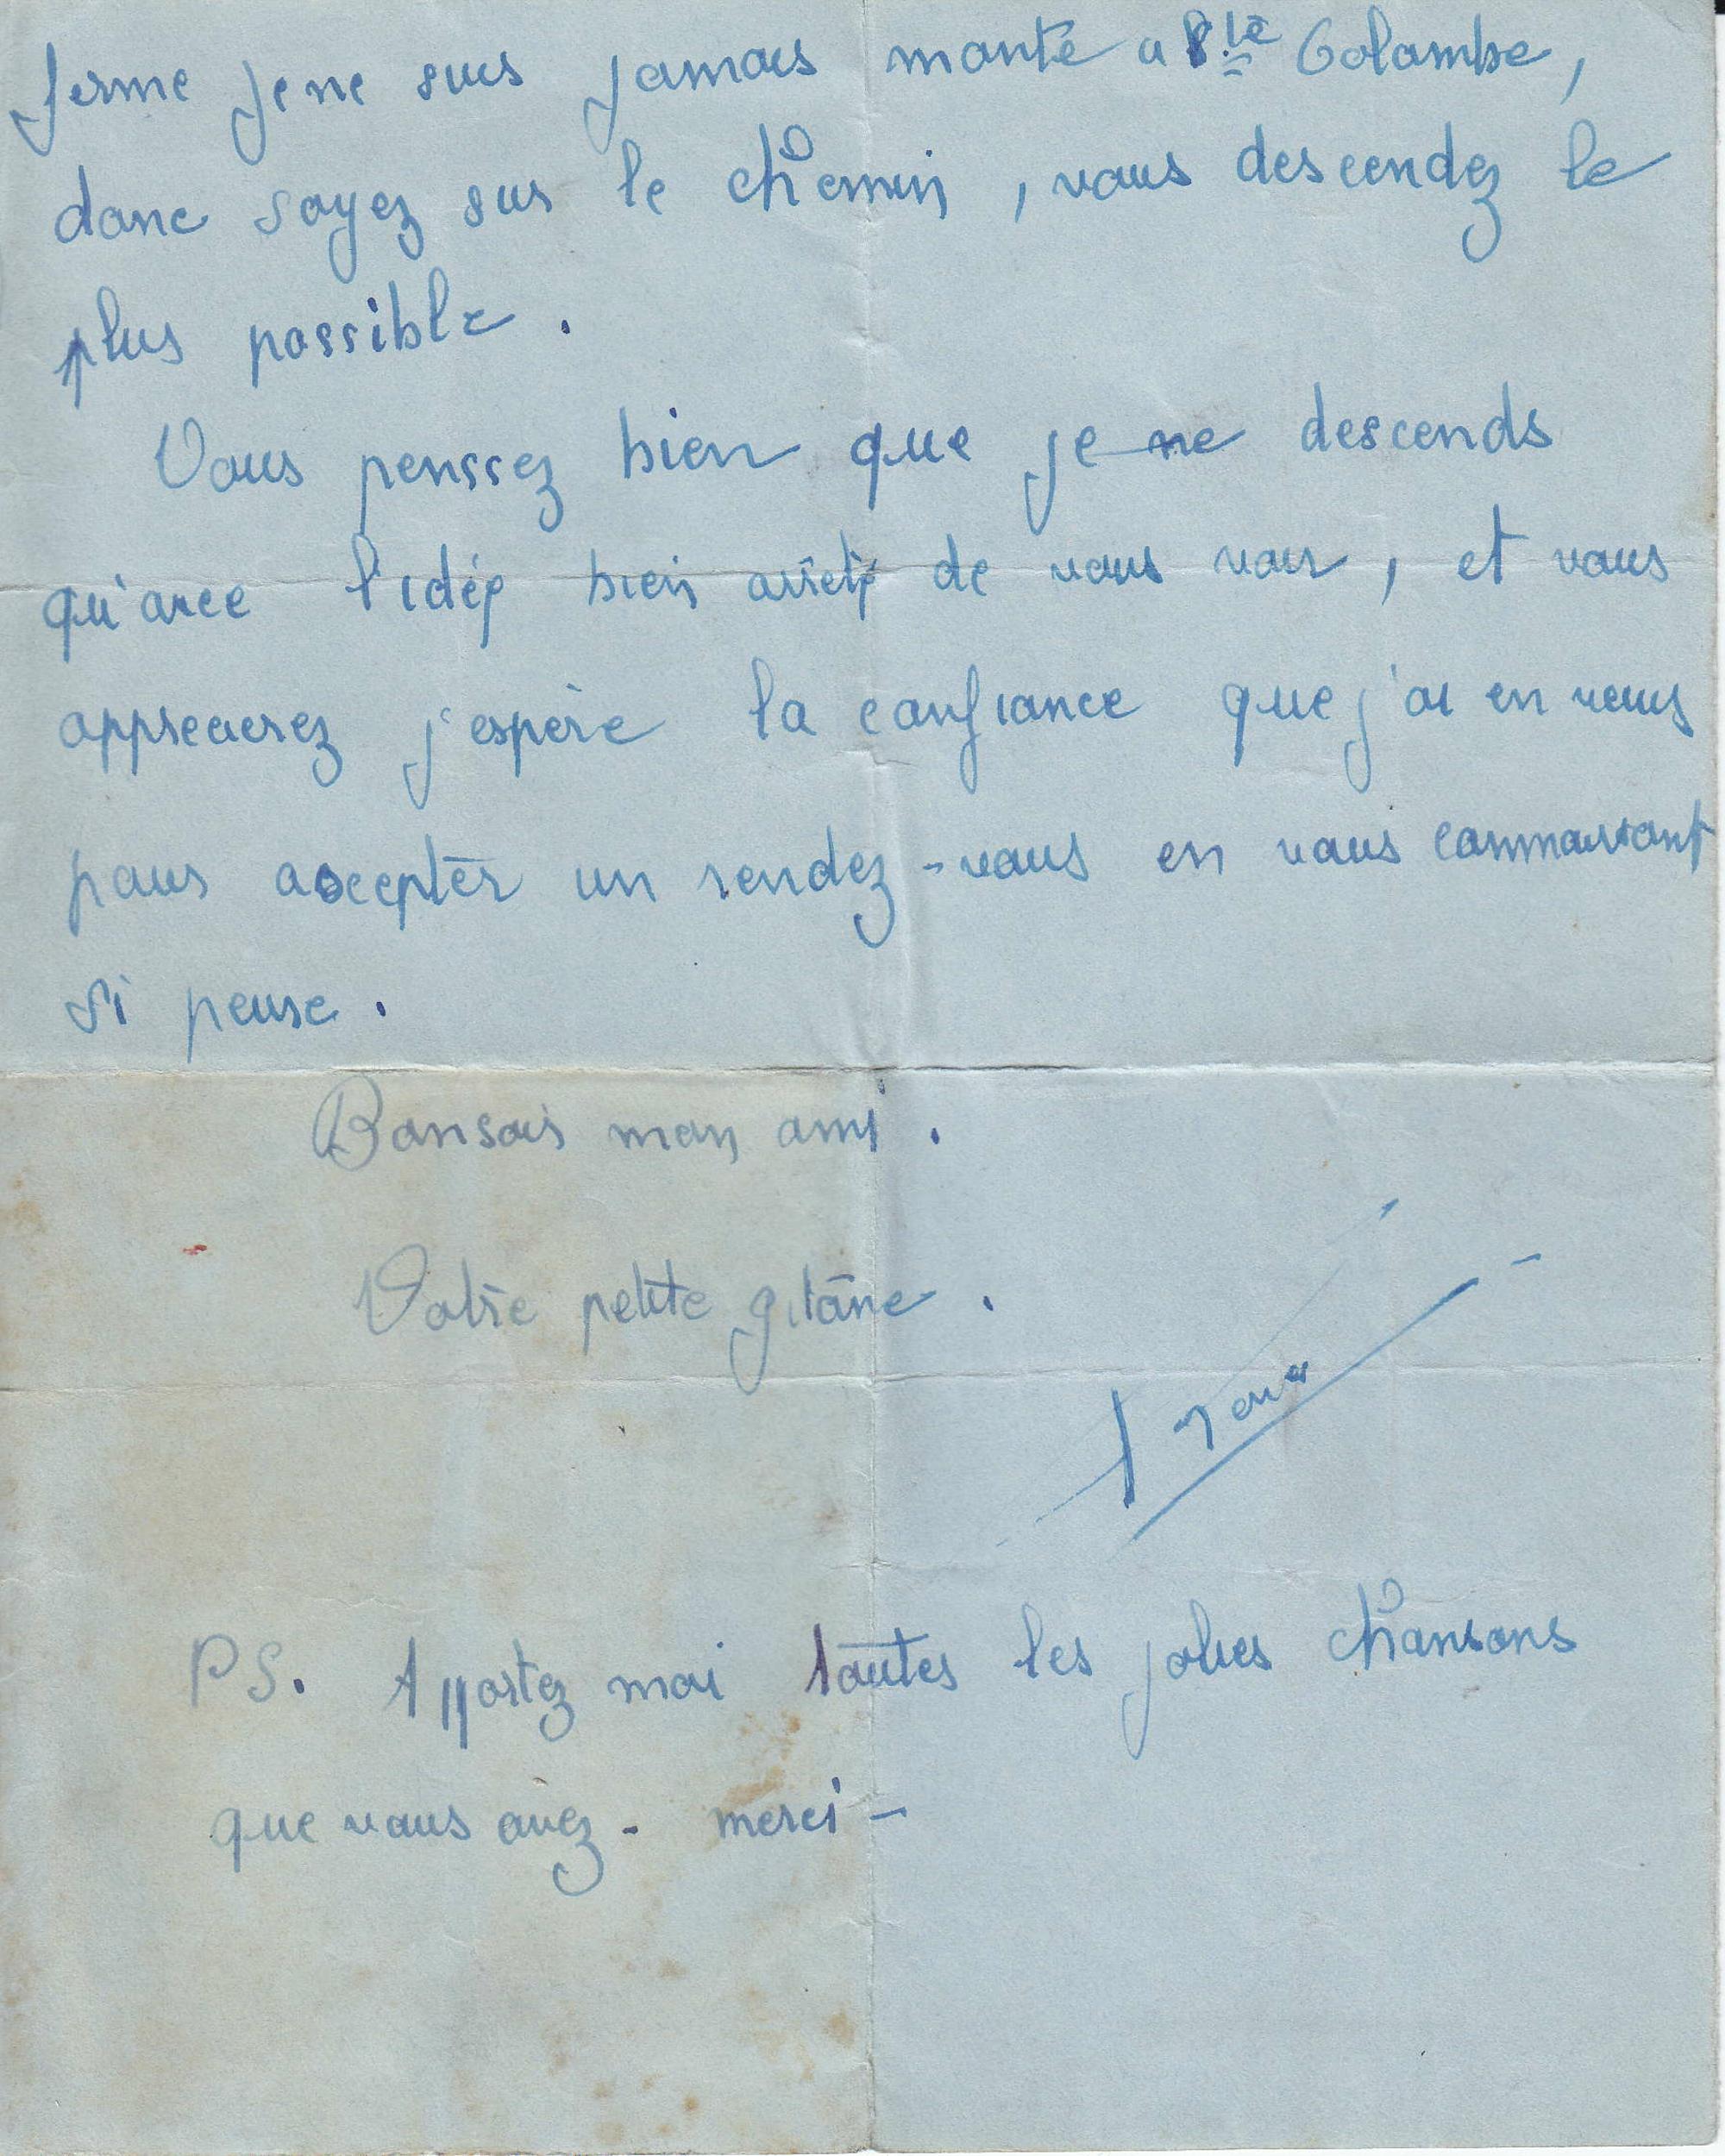 ferme je ne suis jamais monté a Ste Colombe,
donc soyez sur le chemin, vous descendez le
plus possible.
Vous penssez bien que je ne descends
qu'avec l'idée bien arretée de vous voir, et vous
apprecierez j'espère la confiance que j'ai en vous
pour accepter un rendez-vous en vous connaissant
si peu.
Bonsoir mon ami.
Votre petite gitane.
Irène
PS. Apportez moi toutes les jolies chansons
que vous avez - merci -